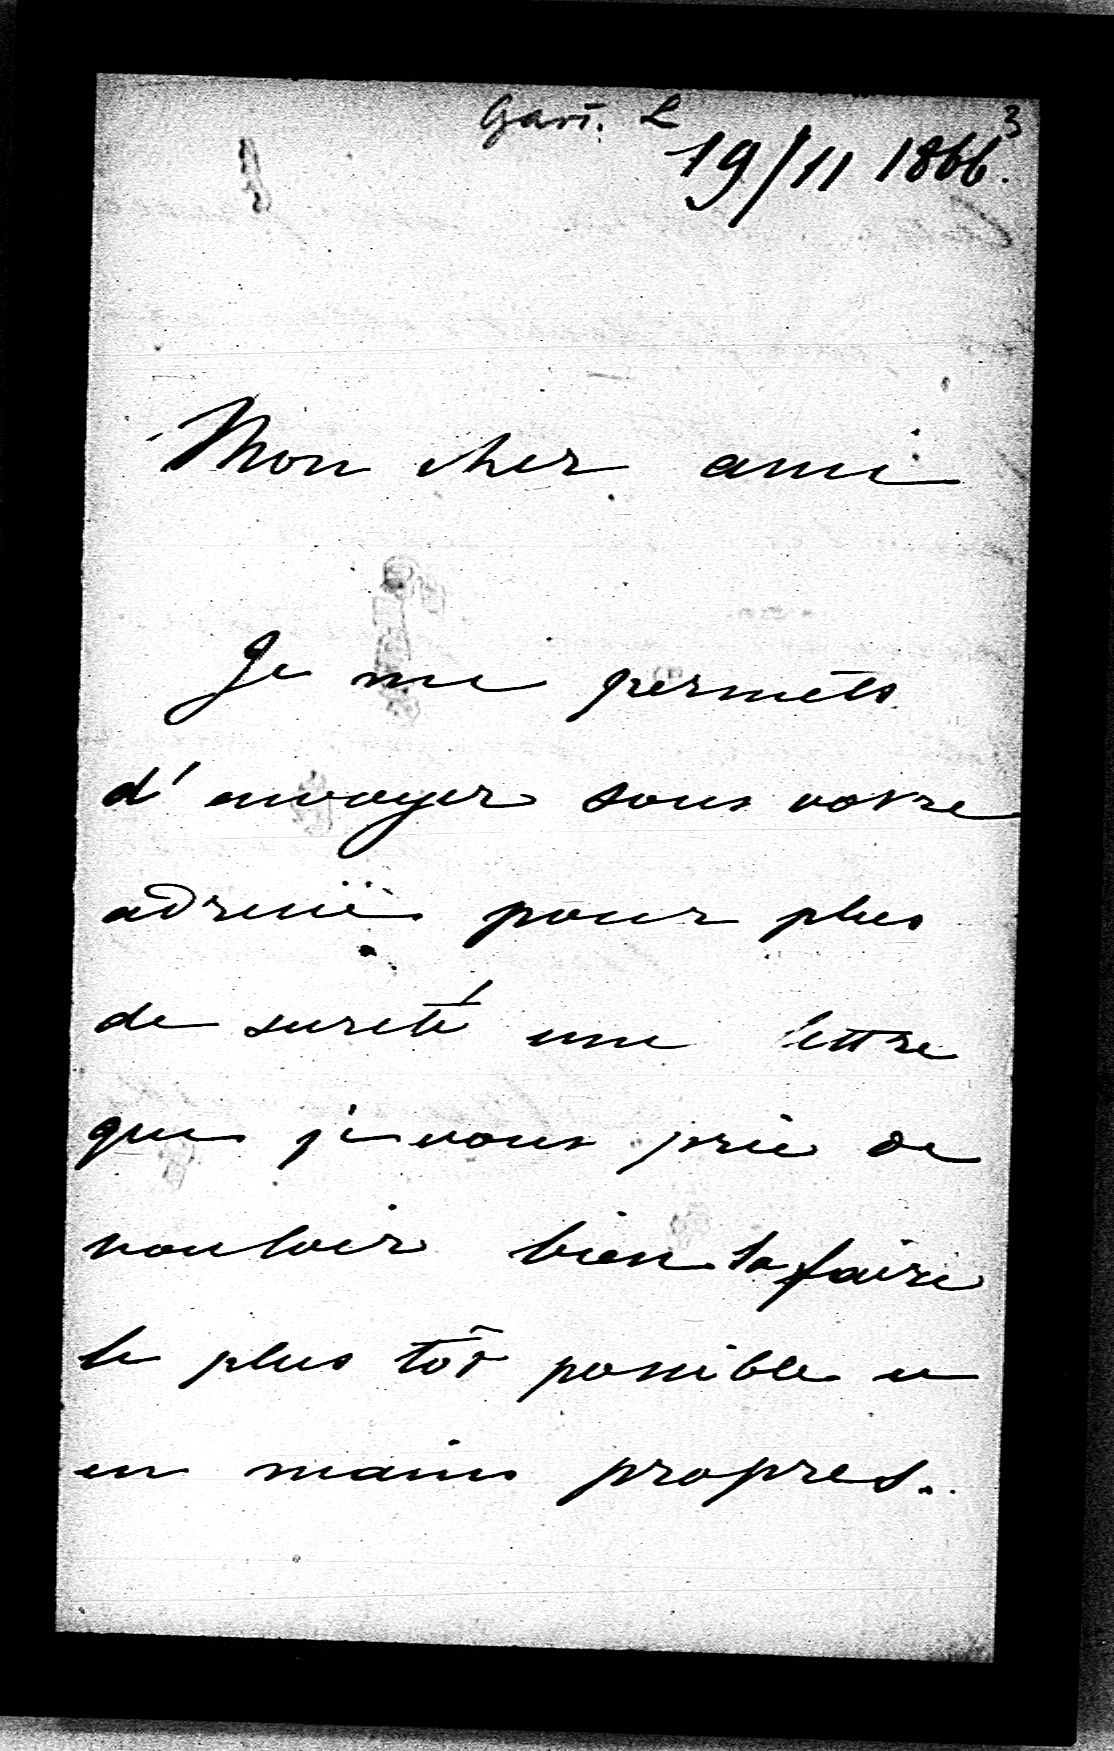 Gart. L
3
19/11 1866.
Mon cher ami
Je me permets
d'envoyer sous votre
adresse pour plus
de sureté une lettre
que je vous prie de
vouloir bien la faire
le plus tôt possible et
en mains propres.